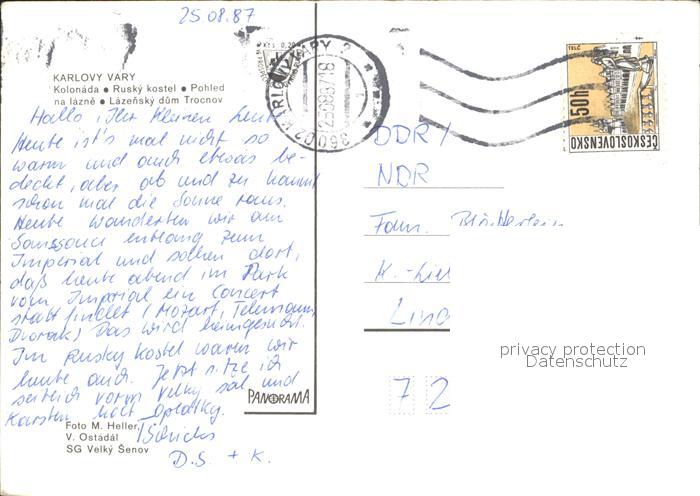 25.08.87
KARLOVY VARY
Kolonáda • Ruský kostel • Pohled
na lázně • Lázeňský dům Trocnov
Hallo, Ihr Kleinen
Heute ist's mal nicht so
warm und auch etwas be-
deckt, aber ab und zu kommt
schon mal die Sonne raus.
Heute wanderten wir am
Sanssouci entlang zum
Imperial und sahen dort,
daß heute abend im Park
vom Imperial ein Concert
stattfindet (Mozart, Telemann,
Dvorak) Das wird heimgesucht.
Im Rusky Kostel waren wir
heute auch. Jetzt sitze ich
seitlich vorm Velky sal und
Karsten holt Oplatky.
Tschüß
D.S. + K.
Foto M. Heller,
V. Ostádal
SG Velký Šenov
PANORAMA
Kčs 0,20
360 02 KARLOVY VARY 2
TELČ
50h
ČESKOSLOVENSKO
DDR /
NDR
Fam.
K.-
72
privacy protection
Datenschutz